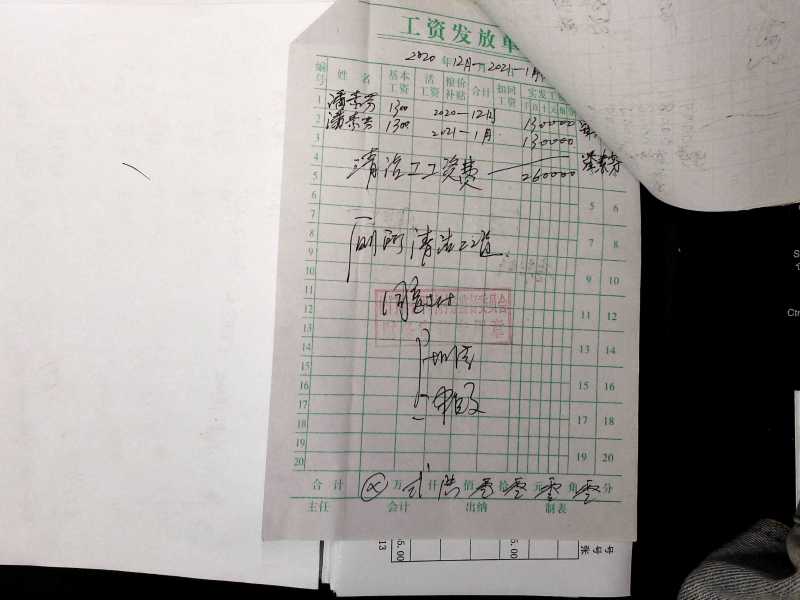 工资发放单
2020年12月-2021-1月
编号 姓名 基本工资 活工资 粮价补贴 合计 扣回工资 实发工
千百十元角分
1 潘素芳 1300 2020-12月 130000
2 潘素芳 1300 2021-1月 130000
3
4 清洁工工资费 260000
5 5 6
6
7 7 8
8 厕所清洁工资
9 9 10
10
11 同意支付 11 12
12
13 13 14
14
15 15 16
16
17 17 18
18
19 19 20
20
合计 ⊗万 贰仟 陆佰 零拾 零元 零角 零分
主任 会计 出纳 制表
5.00
13
5.00
号 号 张
Ctr